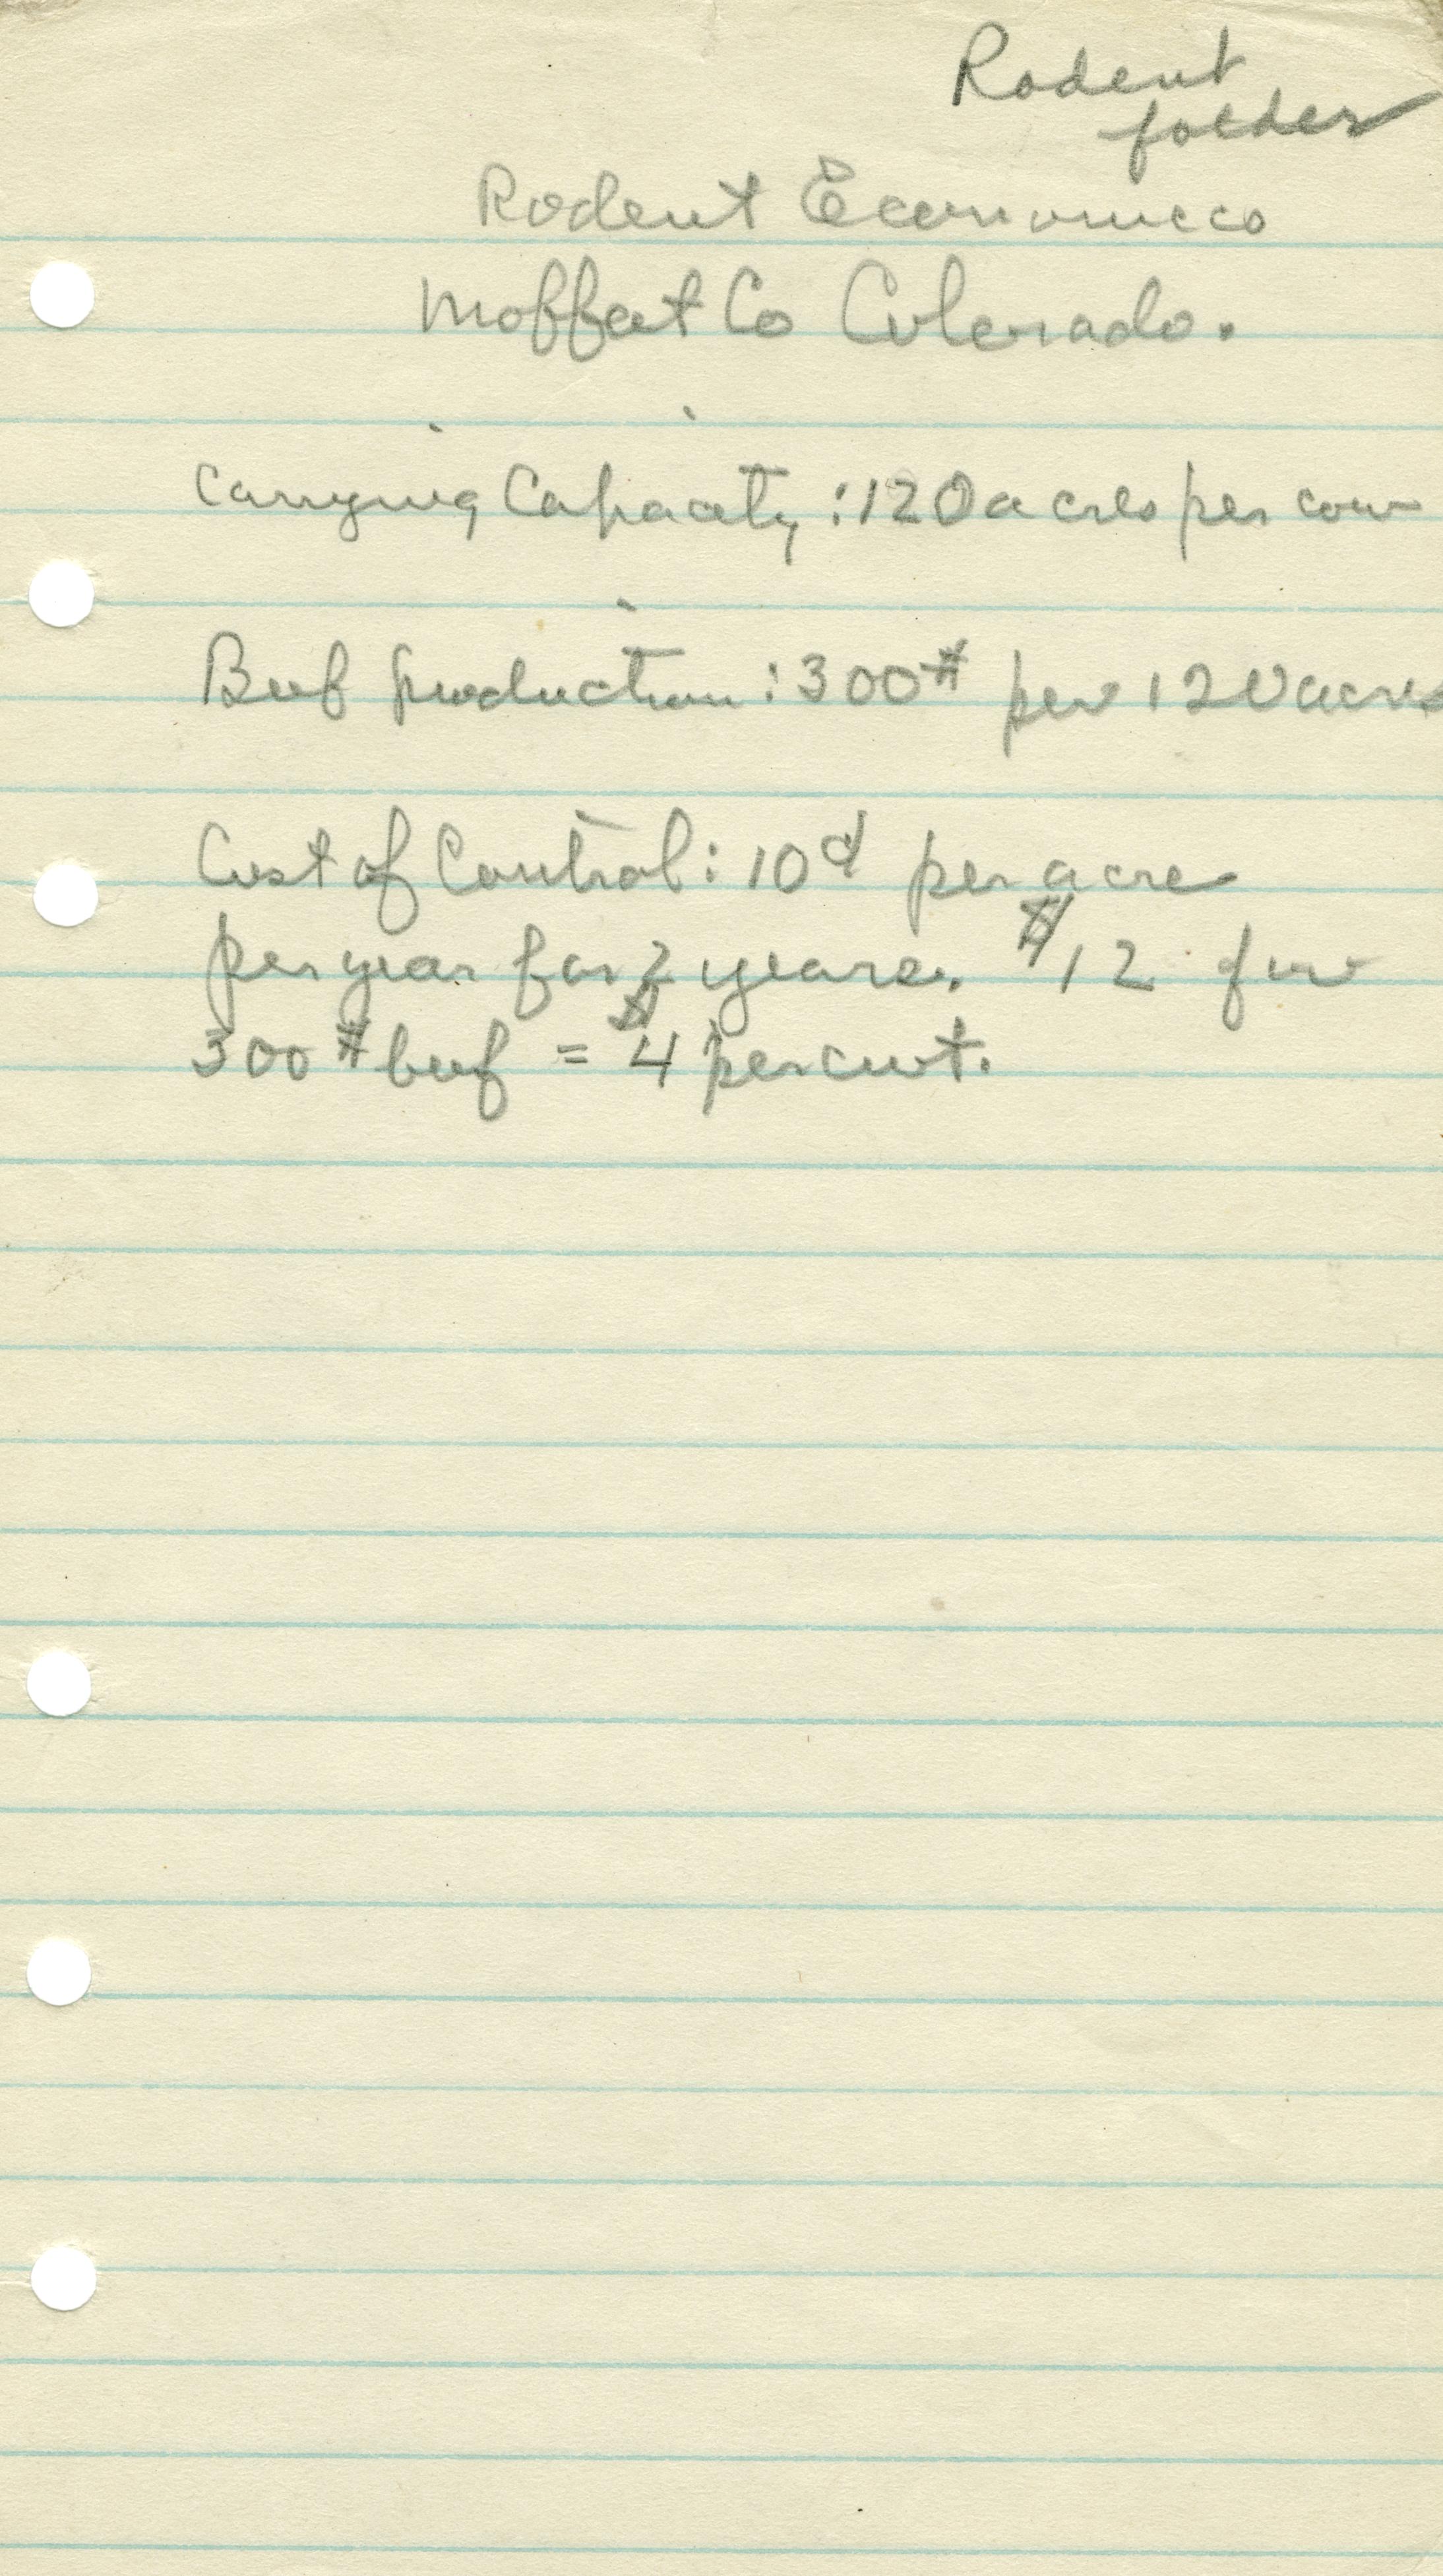 Rodent
folder
Rodent Economics
Moffat Co Colorado.
Carrying Capacity: 120 acres per cow
Beef production: 300# per 120 acres
Cost of Control: 10¢ per acre
per year for 2 years. $12 for
300# beef = $4 per cwt.